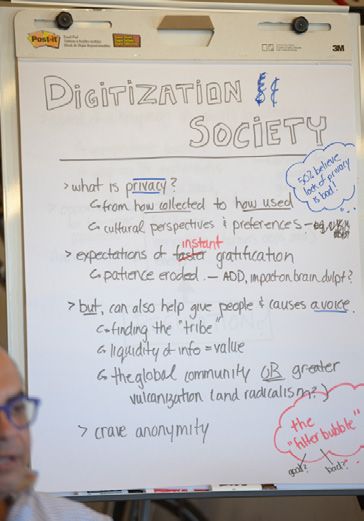 Post-it
3M
DIGITIZATION &
SOCIETY
50% believe
lack of privacy
is bad!
> what is privacy?
↳ from how collected to how used
↳ cultural perspectives & preferences —
instant
> expectations of faster gratification
↳ patience eroded. — ADD, impact on brain dvlpt?
> but, can also help give people & causes a voice.
↳ finding the "tribe"
↳ liquidity of info = value
↳ the global community OR greater
vulcanization (and radicalism?)
> crave anonymity
the
"filter bubble"
good? bad?